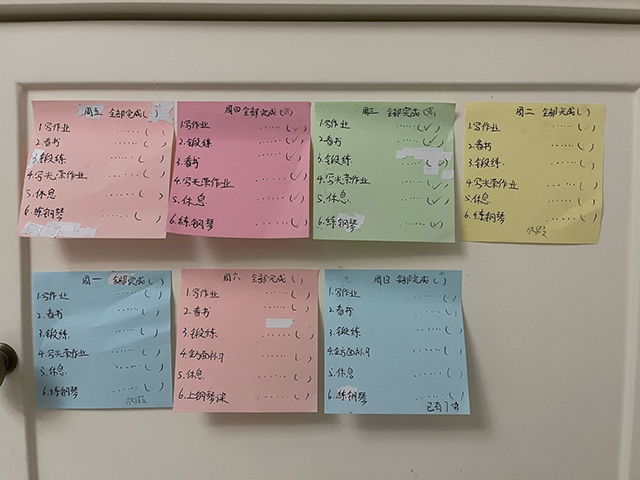 周五 全部完成( )
1.写作业 ……( )
2.看书 ……( )
3.锻练 ……( )
4.写关索作业 ……( )
5.休息 ……( )
6.练钢琴 ……( )
周四 全部完成( )
1.写作业 ……(✓)
2.锻练 ……(✓)
3.看书 ……(✓)
4.写关索作业 ……(✓)
5.休息 ……(✓)
6.练钢琴 ……(✓)
周三 全部完成( )
1.写作业 ……(✓)
2.看书 ……(✓)
3.锻练 ……(✓)
4.写关索作业 ……(✓)
5.休息 ……(✓)
6.练钢琴 ……(✓)
周二 全部完成( )
1.写作业 ……( )
2.看书 ……( )
3.锻练 ……( )
4.写关索作业 ……( )
5.休息 ……( )
6.练钢琴 ……( )
周一 全部完成( )
1.写作业 ……( )
2.看书 ……( )
3.锻练 ……( )
4.写关索作业 ……( )
5.休息 ……( )
6.练钢琴 ……( )
周六 全部完成( )
1.写作业 ……( )
2.看书 ……( )
3.锻练 ……( )
4.全方面补习 ……( )
5.休息 ……( )
6.上钢琴课 ……( )
周日 全部完成( )
1.写作业 ……( )
2.看书 ……( )
3.锻练 ……( )
4.全方面补习 ……( )
5.休息 ……( )
6.练钢琴 ……( )